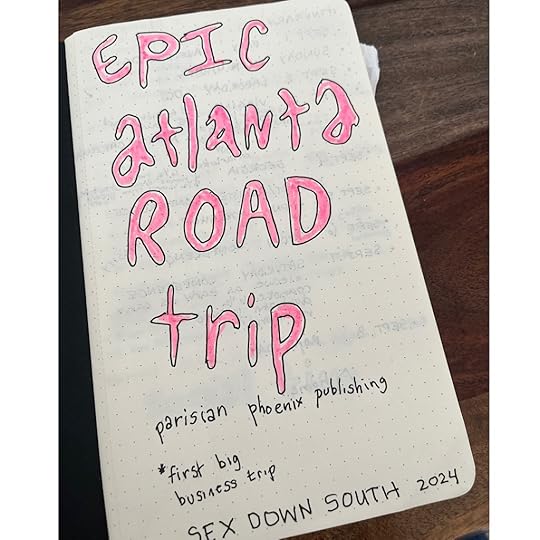 EPIC
atlanta
ROAD
trip
parisian phoenix publishing
*first big
business trip
SEX DOWN SOUTH 2024